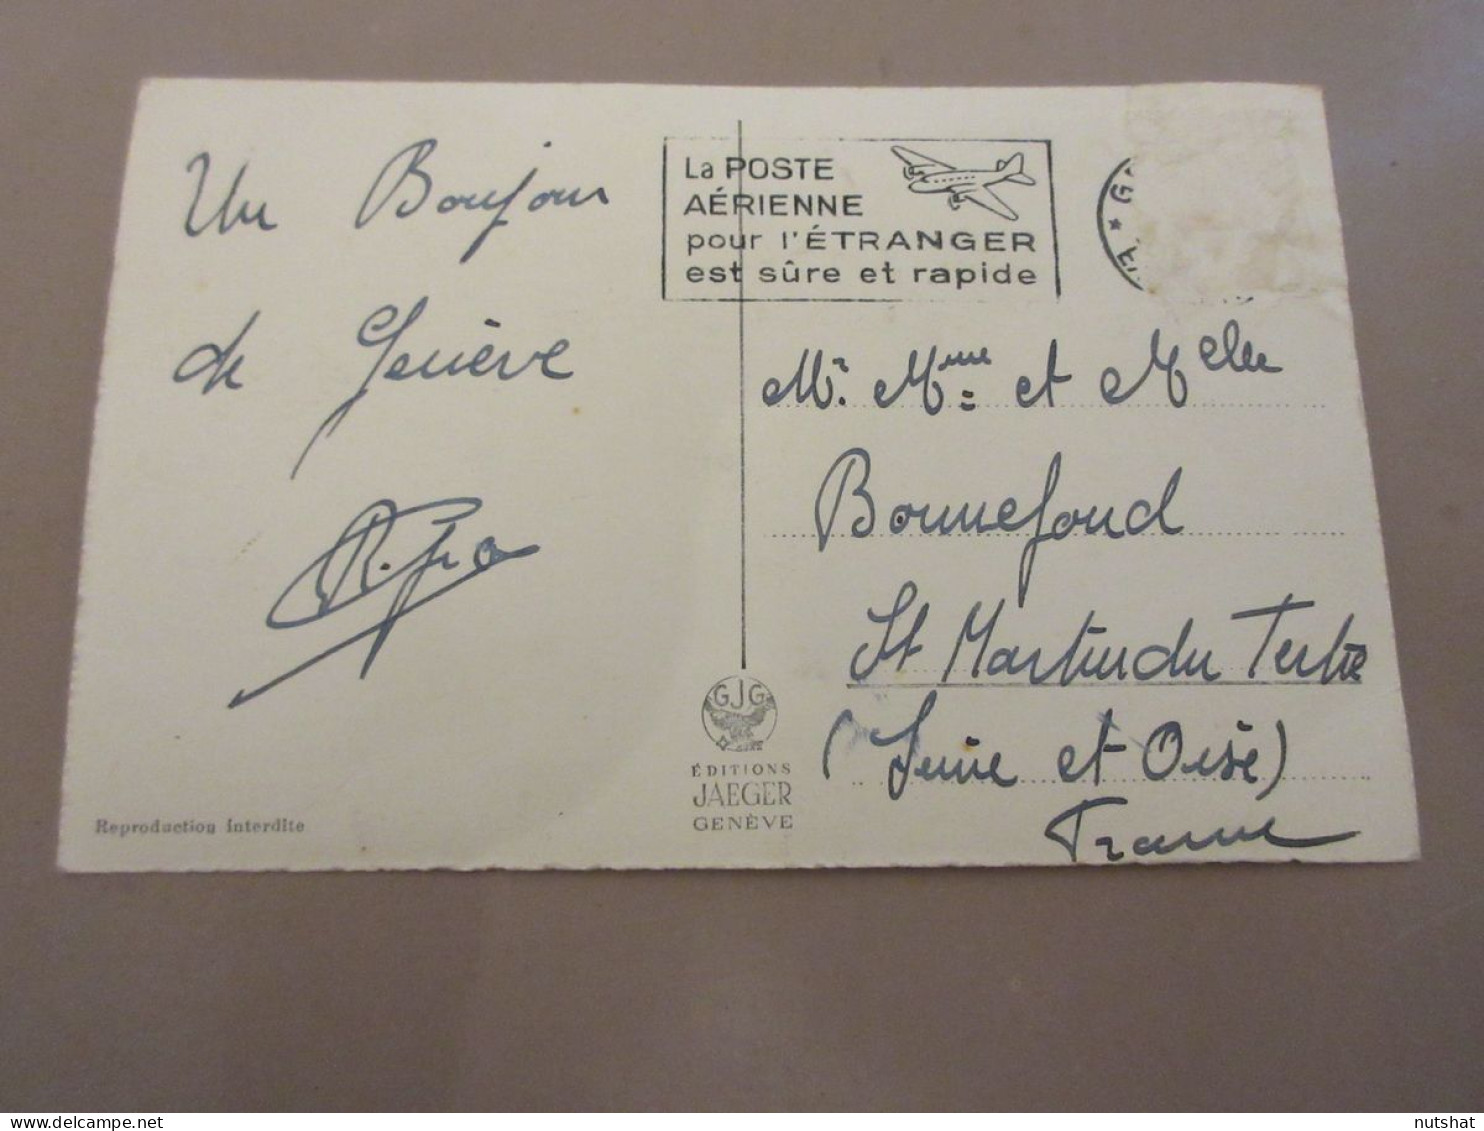 Un Bonjour
de Genève
La POSTE
AÉRIENNE
pour l'ÉTRANGER
est sûre et rapide
Mr. Mme et Melle
Bonnefond
St Martin du Tertre
(Seine et Oise)
France
GJG
ÉDITIONS
JAEGER
GENÈVE
Reproduction interdite
nutshat